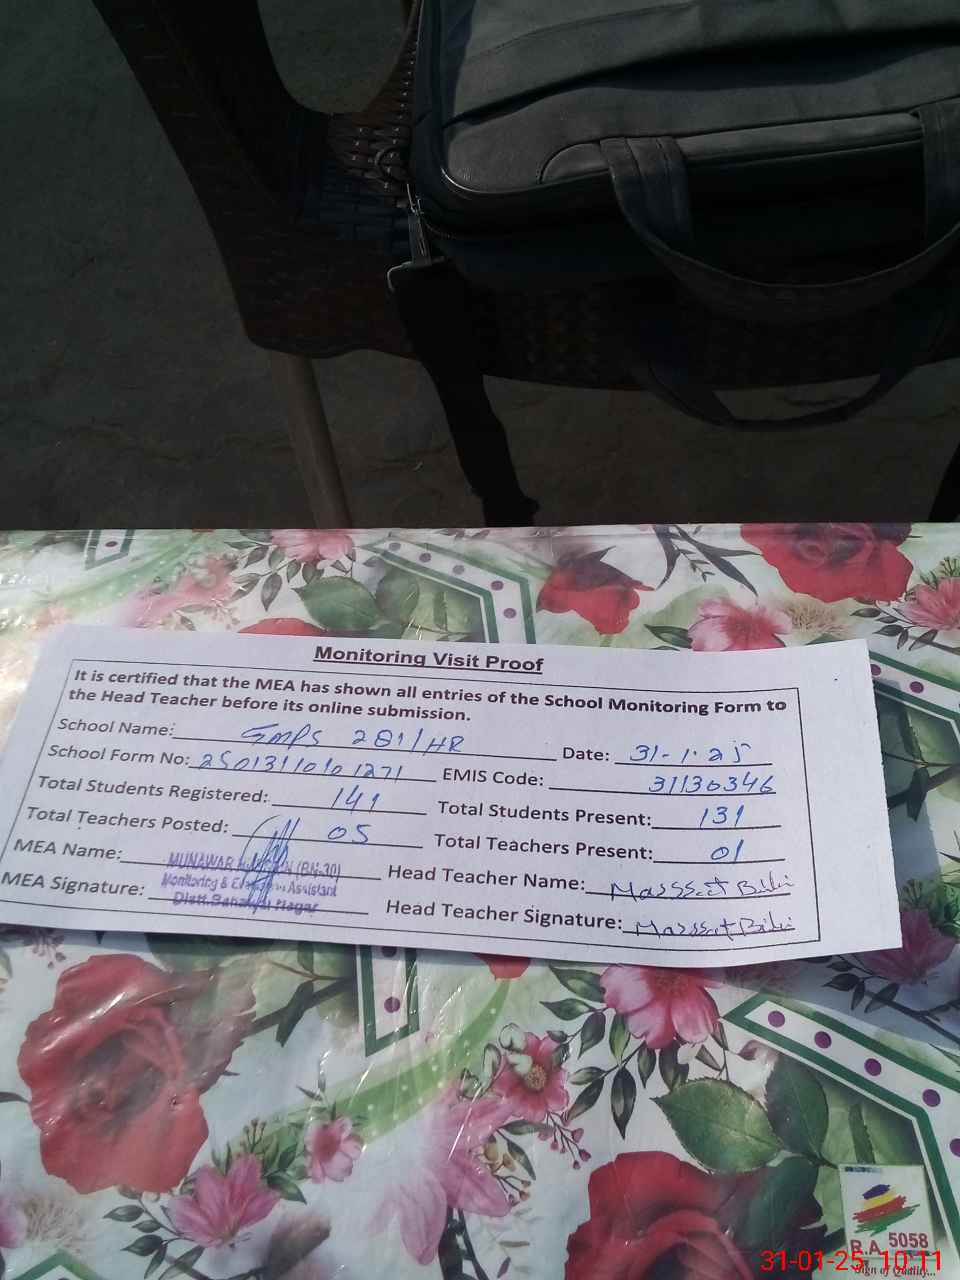 Monitoring Visit Proof
It is certified that the MEA has shown all entries of the School Monitoring Form to
the Head Teacher before its online submission.
School Name: GMPS 281/HR Date: 31-1-25
School Form No: 25013110101271 EMIS Code: 31130346
Total Students Registered: 141 Total Students Present: 131
Total Teachers Posted: 05 Total Teachers Present: 01
MEA Name: MUNAWAR Head Teacher Name: Bibi
Monitoring & Evaluation Assistant
MEA Signature: Distt. Bahawal Nagar Head Teacher Signature: Bibi
R.A 5058
Sign of Quality...
31-01-25 10:11